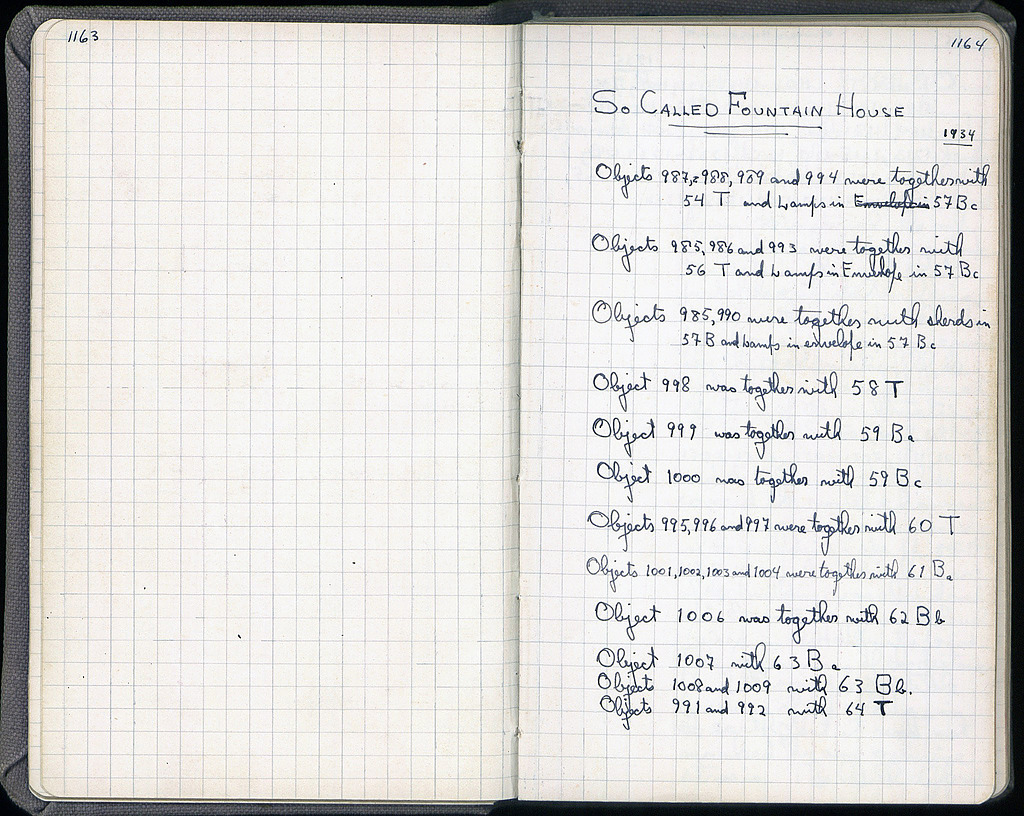 1163
1164
So Called Fountain House
1934
Objects 987, 988, 989 and 994 were together with
54 T and Lamps in Envelope in 57 Bc
Objects 985, 986 and 993 were together with
56 T and Lamps in Envelope in 57 Bc
Objects 985, 990 were together with sherds in
57 B and Lamps in envelope in 57 Bc
Object 998 was together with 58 T
Object 999 was together with 59 Ba
Object 1000 was together with 59 Bc
Objects 995, 996 and 997 were together with 60 T
Objects 1001, 1002, 1003 and 1004 were together with 61 Ba
Object 1006 was together with 62 Bb
Object 1007 with 63 Ba
Objects 1008 and 1009 with 63 Bb.
Objects 991 and 992 with 64 T